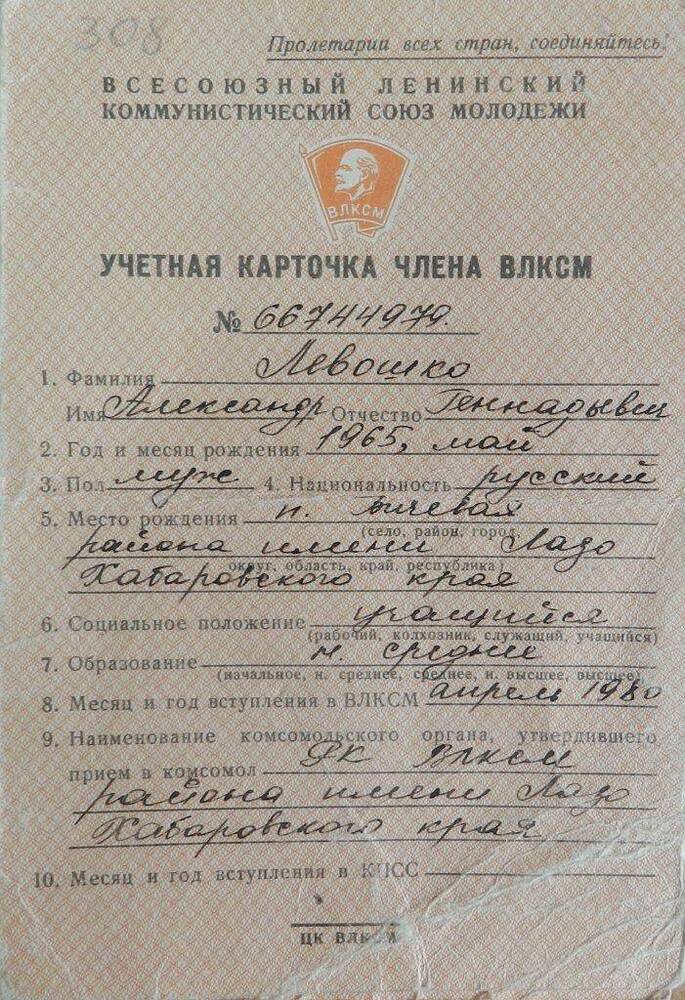 308
Пролетарии всех стран, соединяйтесь!
ВСЕСОЮЗНЫЙ ЛЕНИНСКИЙ
КОММУНИСТИЧЕСКИЙ СОЮЗ МОЛОДЕЖИ
ВЛКСМ
УЧЕТНАЯ КАРТОЧКА ЧЛЕНА ВЛКСМ
№ 66744979.
1. Фамилия Левошко
Имя Александр Отчество Геннадьевич
2. Год и месяц рождения 1965, май
3. Пол муж 4. Национальность русский
5. Место рождения п. Бичевая
(село, район, город,
района имени Лазо
округ, область, край, республика)
Хабаровского края
6. Социальное положение учащийся
(рабочий, колхозник, служащий, учащийся)
7. Образование н. среднее
(начальное, н. среднее, среднее, н. высшее, высшее)
8. Месяц и год вступления в ВЛКСМ апрель 1980
9. Наименование комсомольского органа, утвердившего
прием в комсомол РК ВЛКСМ
района имени Лазо
Хабаровского края
10. Месяц и год вступления в КПСС
ЦК ВЛКСМ